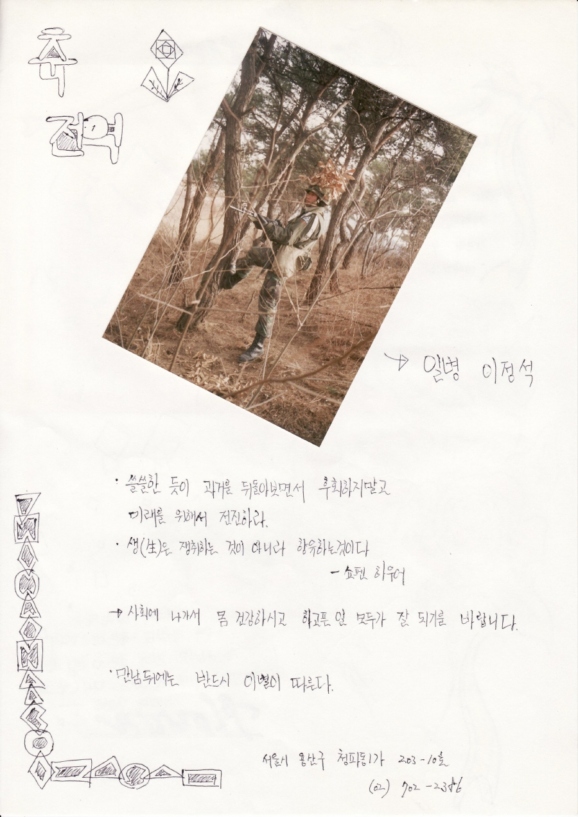 축
전역
→ 일병 이정석
· 쓸쓸한 듯이 과거를 뒤돌아보면서 후회하지말고
미래를 위해서 전진하라.
· 생(生)은 쟁취하는 것이 아니라 향유하는것이다
- 쇼펜 하우어
→ 사회에 나가서 몸 건강하시고 하고픈 일 모두가 잘 되기를 바랍니다.
· 만남뒤에는 반드시 이별이 따른다.
서울시 용산구 청파동1가 203-10호
(02) 702-2386